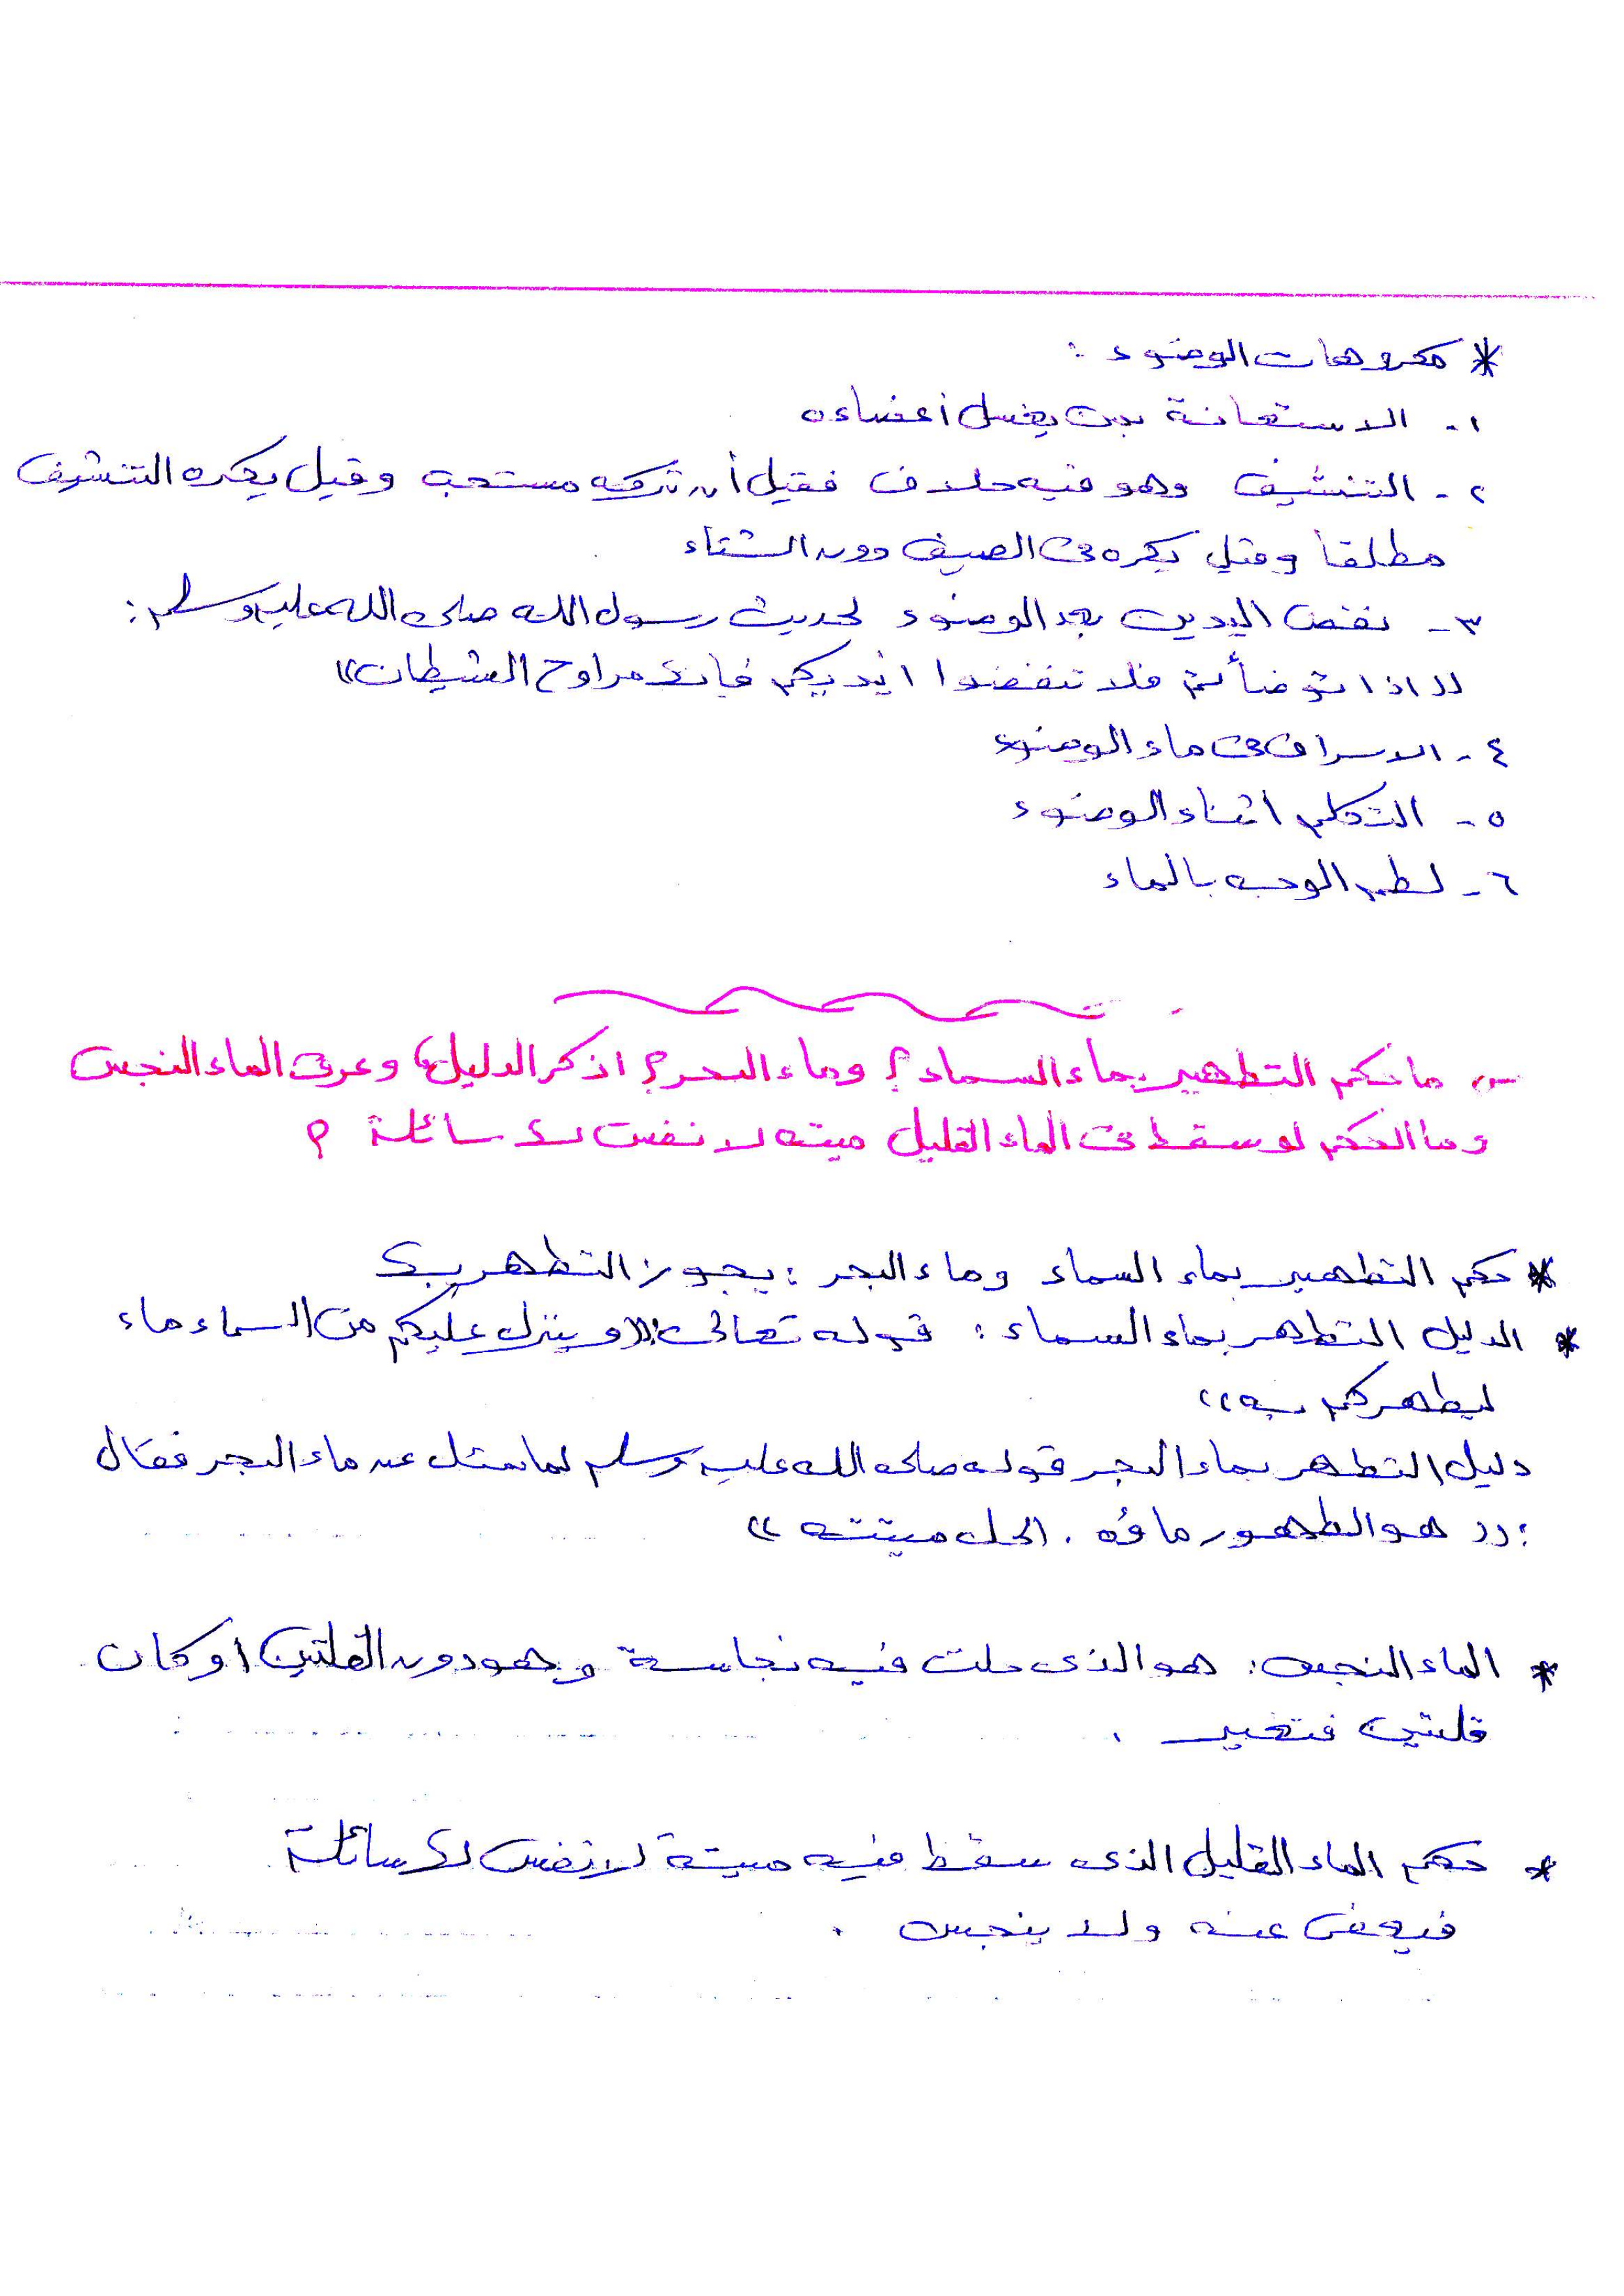 * مكروهات الوضوء :
١- الاستعانة بمن يغسل أعضاءه
٢- التنشيف وهو فيه خلاف فقيل أن تركه مستحب وقيل يكره التنشيف
مطلقا وقيل يكره فى الصيف دون الشتاء
٣- نفض اليدين بعد الوضوء لحديث رسول الله صلى الله عليه وسلم :
((اذا توضأتم فلا تنفضوا ايديكم فإنها مراوح الشيطان))
٤- الاسراف فى ماء الوضوء
٥- التكلم اثناء الوضوء
٦- لطم الوجه بالماء
س ما حكم التطهير بماء السماء ؟ وماء البحر ؟ اذكر الدليل، وعرف الماء النجس
وما الحكم لو سقط فى الماء القليل ميته لا نفس لها سائلة ؟
* حكم التطهير بماء السماء وماء البحر : يجوز التطهر بها
* الدليل التطهر بماء السماء : قوله تعالى :((وينزل عليكم من السماء ماء
ليطهركم به))
دليل التطهر بماء البحر قوله صلى الله عليه وسلم لما سئل عن ماء البحر فقال
: ((هو الطهور ماؤه . الحل ميتته ))
* الماء النجس : هو الذى حلت فيه نجاسة وهو دون القلتين أو كان
قلتين فتغير .
* حكم الماء القليل الذى سقط فيه ميتة لا نفس لها سائلة
فيعفى عنه ولا ينجس .